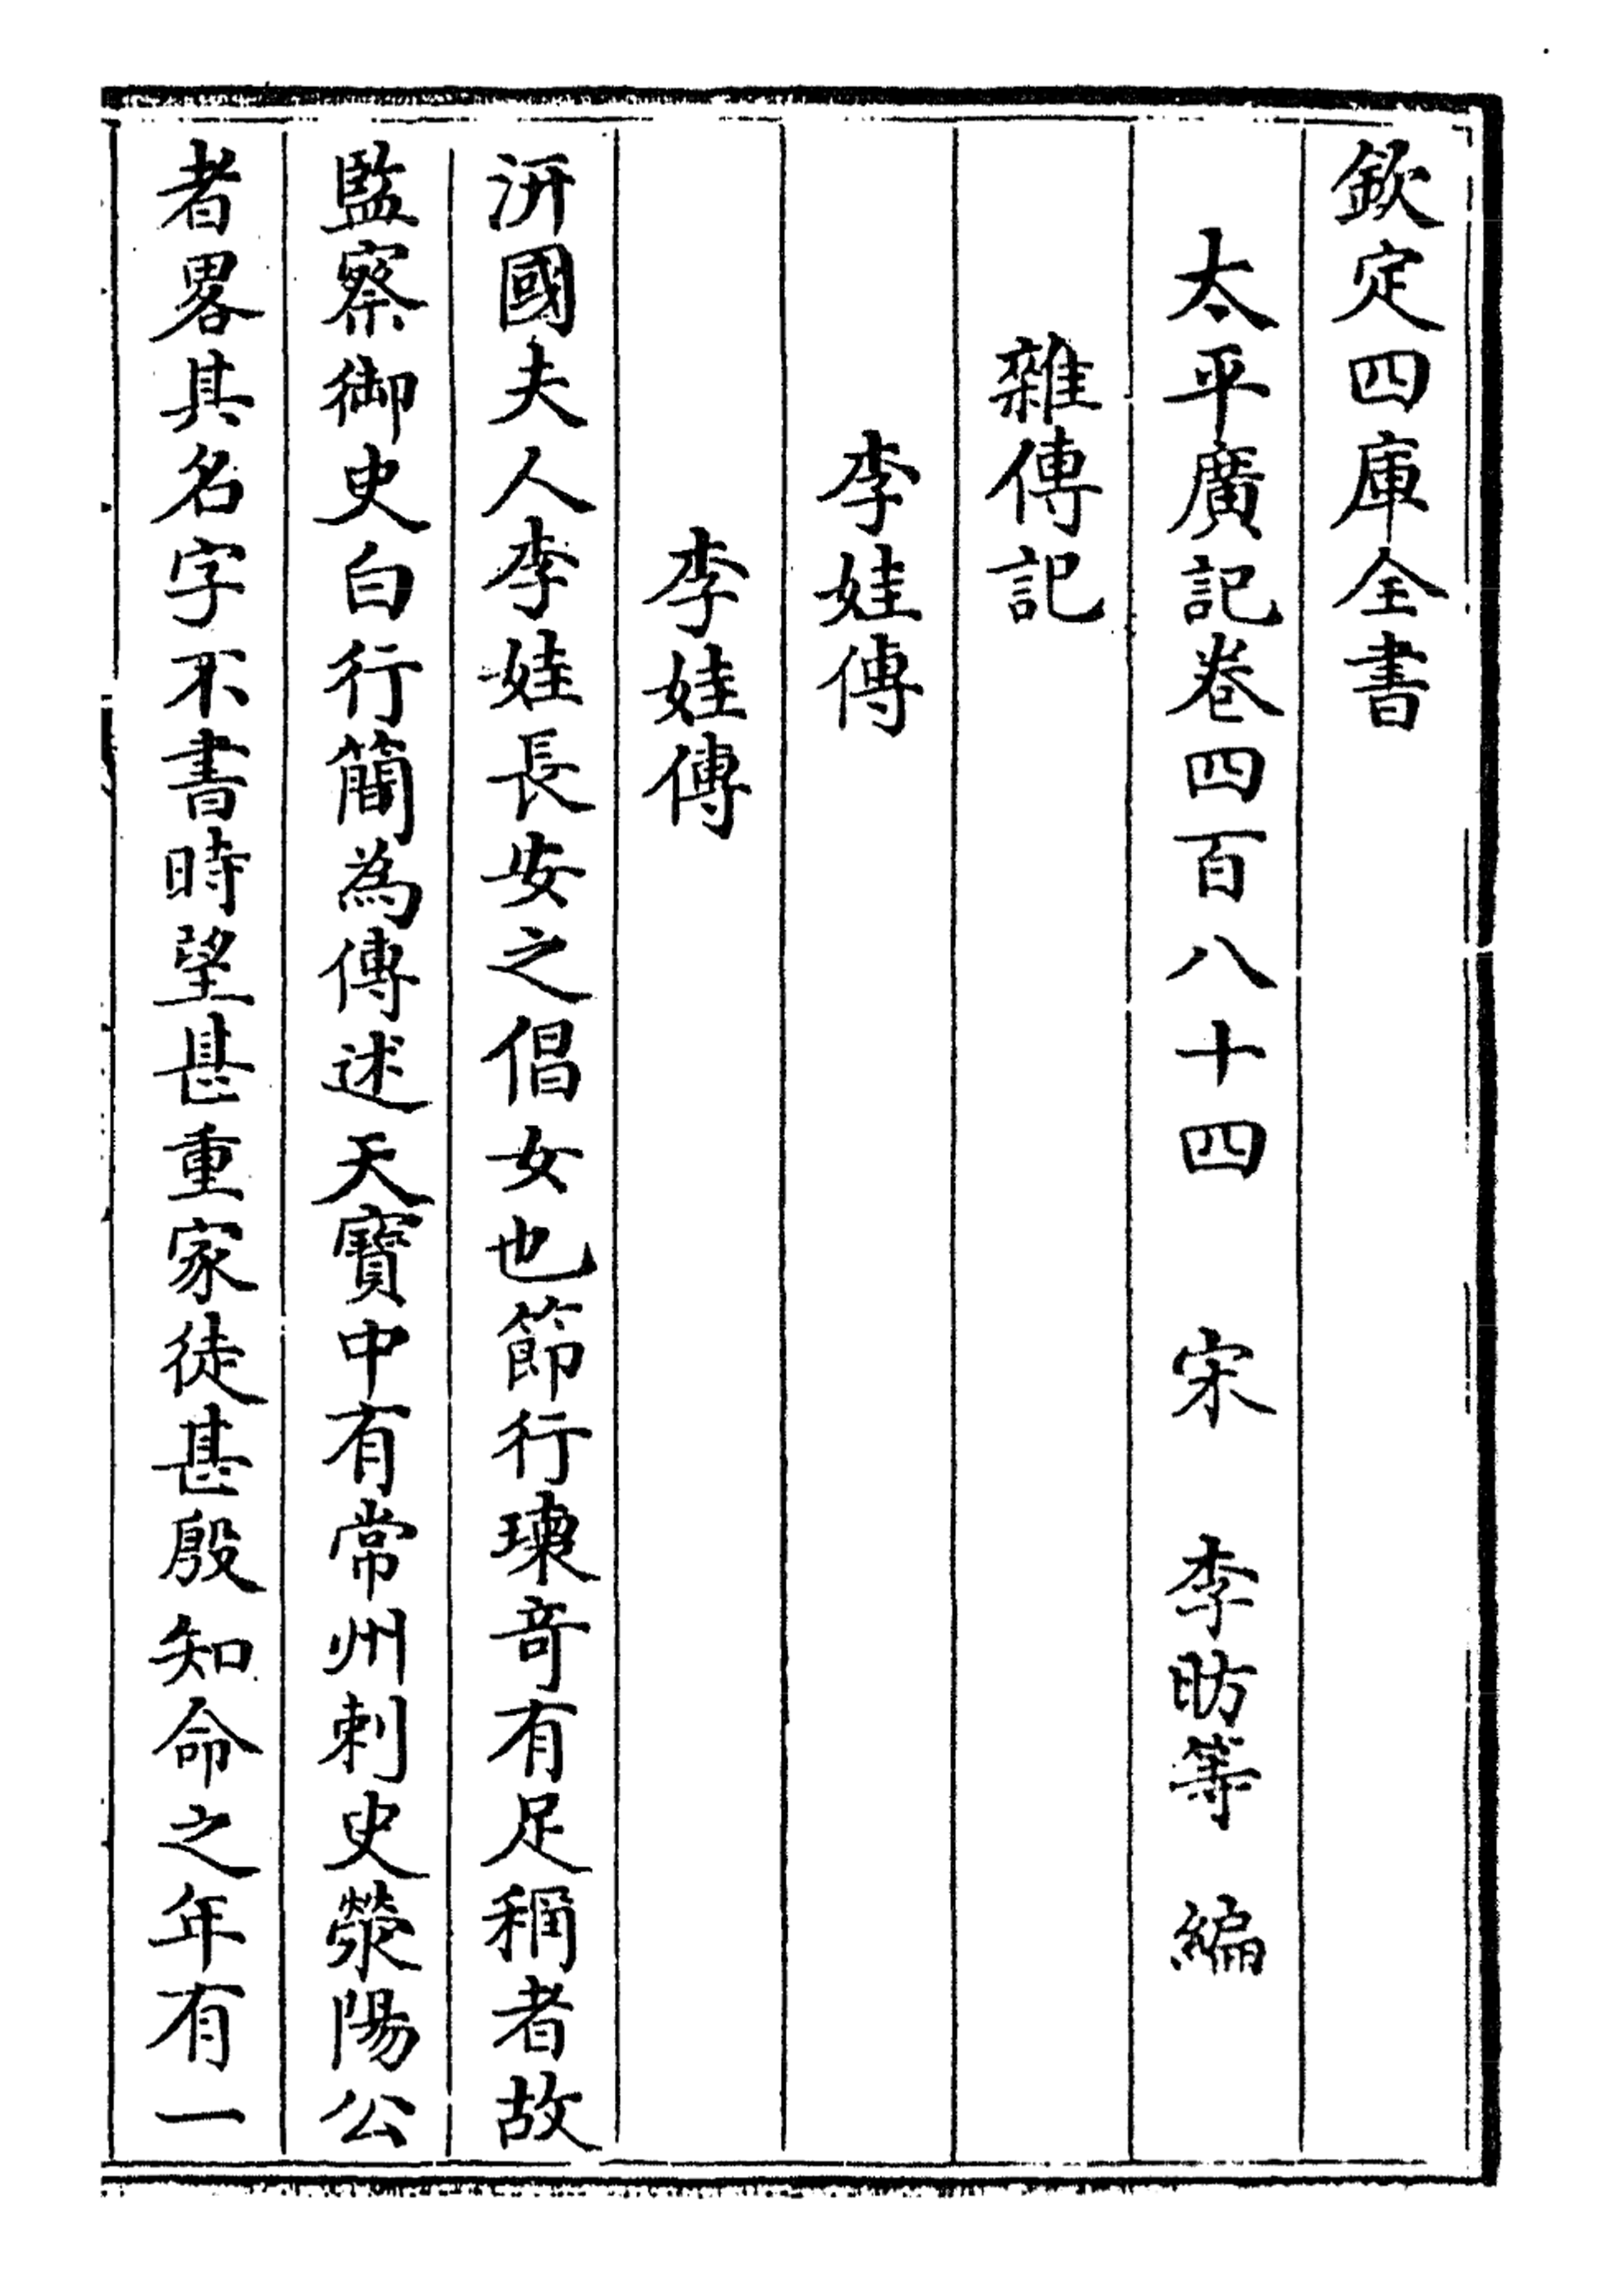 欽定四庫全書
太平廣記卷四百八十四　宋　李昉等　編
雜傳記
李娃傳
李娃傳
汧國夫人李娃長安之倡女也節行瓌竒有足稱者故
監察御史白行簡為傳述天寶中有常州刺史滎陽公
者畧其名字不書時望甚重家徒甚殷知命之年有一